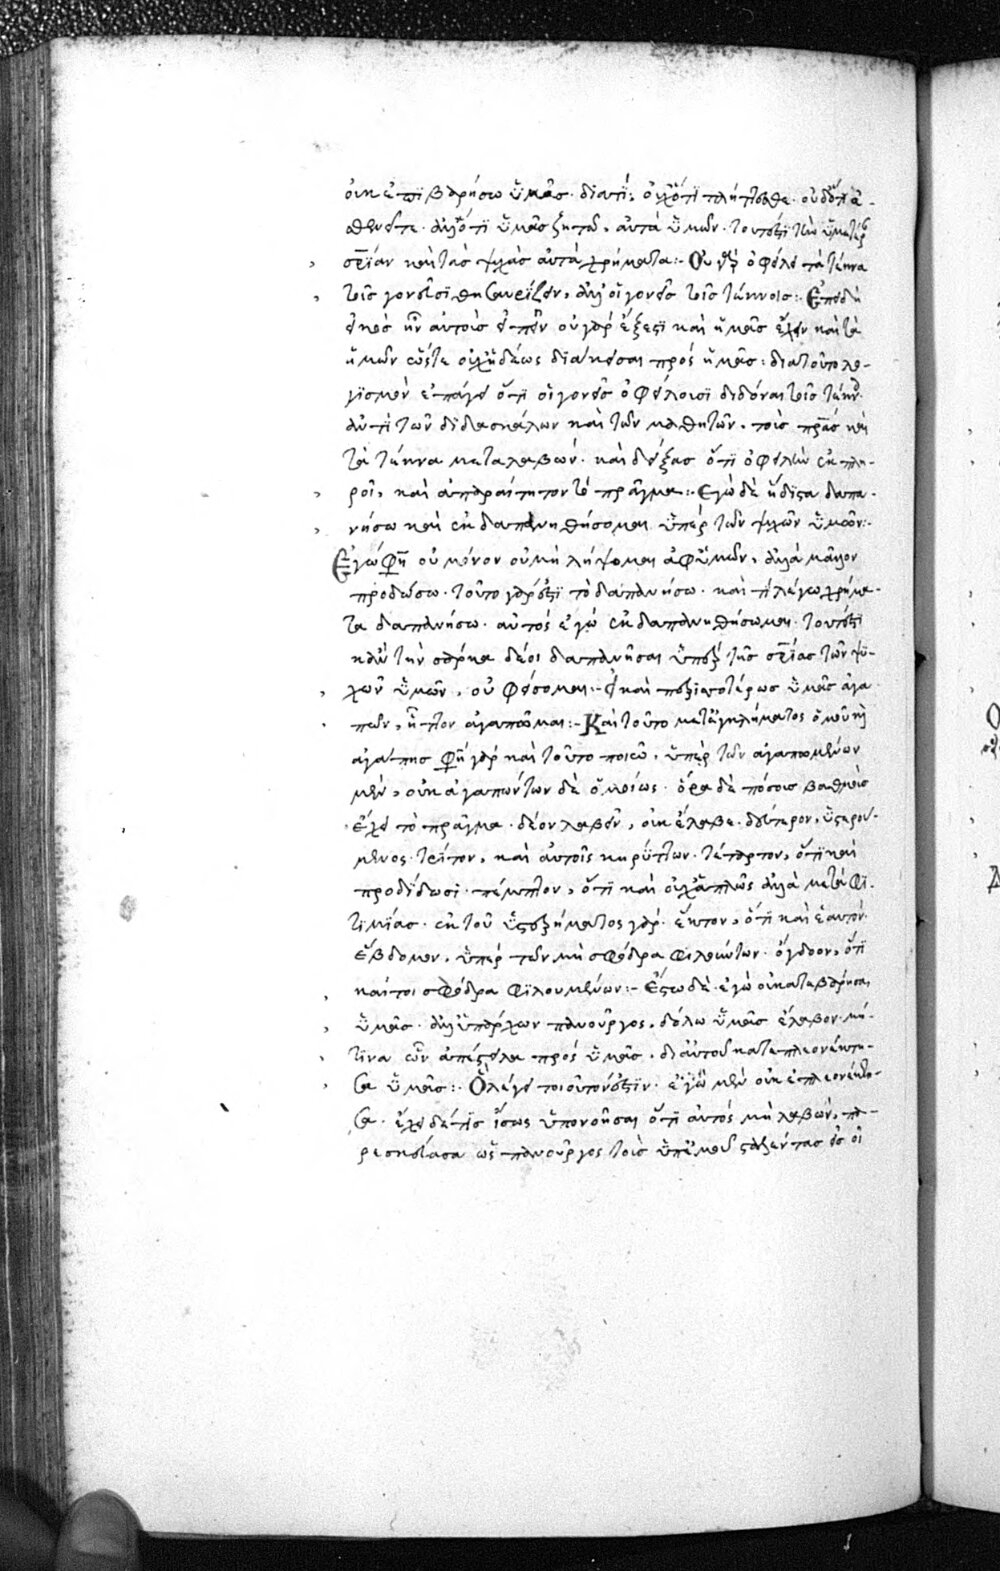 οὐκ ἐπιβαρήσω ὑμᾶς· διατί; οὐχ ὅτι πλήττεσθε· οὐδ ὅτι ἀ-
σθενεῖτε· ἀλλ ὅτι ὑμᾶς ζητῶ, οὐ τὰ ὑμῶν· τουτέστι τὴν ὑμετέρ
σρίαν καὶ τὰς ψυχὰς οὐ τὰ χρήματα:- Οὐ γὰρ ὀφείλει τὰ τέκνα
τοῖς γονεῦσι θησαυρίζειν, ἀλλ οἱ γονεῖς τοῖς τέκνοις:- Ἐπειδὴ
εἰκὸς ἦν αὐτοὺς εἰπεῖν οὐ γὰρ ἔξεστι καὶ ἡμᾶς ἔχειν καὶ τὰ
ἡμῶν ὥστε οὐχ ἡδέως διακεῖσαι πρὸς ἡμᾶς: διατοῦτο λο-
γισμὸν ἐπάγει ὅτι οἱ γονεῖς ὀφείλουσι διδόναι τοῖς τέκν
ἀντὶ τῶν διδασκάλων καὶ τῶν μαθητῶν, τοὺς πρας καὶ
τὰ τέκνα μεταλαβών· καὶ δείξας ὅτι ὀφειλὴν ἐκπλη-
ροῖ, καὶ ἀπαραίτητον τὸ πρᾶγμα:- Ἐγὼ δὲ ἥδιστα δαπα-
νήσω καὶ ἐκδαπανηθήσομαι ὑπὲρ τῶν ψυχῶν ὑμῶν:-
Ἐγώ φη οὐ μόνον οὐ μὴ λήψομαι ἀφ ὑμῶν, ἀλλὰ μᾶλλον
προδώσω· τοῦτο γάρ ἐστι τὸ δαπανήσω· καὶ τί λέγω χρήμα-
τα δαπανήσω· αὐτὸς ἐγὼ ἐκδαπανηθήσωμαι· τουτέστι
κἂν τὴν σάρκα δέοι δαπανῆσαι ὑπὲρ τῆς σρίας τῶν ψυ-
χῶν ὑμῶν, οὐ φείσομαι:- εἰ καὶ περισσοτέρως ὑμᾶς ἀγα-
πῶν, ἧττον ἀγαπῶμαι:- Καὶ τοῦτο μετ ἐγκλήματος ὁμοῦ κὶ
ἀγάπης φη γὰρ καὶ τοῦτο ποιῶ, ὑπὲρ τῶν ἀγαπωμένων
μὲν, οὐκ ἀγαπώντων δὲ ὁμοίως· ὅρα δὲ πόσους βαθμοὺς
ἔχει τὸ πρᾶγμα· δέον λαβεῖν, οὐκ ἔλαβε· δεύτερον, ὑστερού-
μενος· τρίτον, καὶ αὐτοῖς κηρύττων· τέταρτον, ὅτι καὶ
προδίδωσι· πέμπτον, ὅτι καὶ οὐχ ἁπλῶς ἀλλὰ μετὰ φι-
τιμίας· ἐκ τοῦ ὑστερήματος γάρ· ἕκτον, ὅτι καὶ ἑαυτόν·
ἕβδομον, ὑπὲρ τῶν μὴ σφόδρα φιλούντων· ὄγδοον, ὅτι
καίτοι σφόδρα φιλουμένων:- Ἔστω δὲ ἐγὼ οὐ κατεβάρησα
ὑμᾶς· ἀλλ ὑπάρχων πανοῦργος, δόλῳ ὑμᾶς ἔλαβον· μή-
τινα ὧν ἀπέσταλκα πρὸς ὑμᾶς, δι αὐτοῦ κατεπλεονέκτη-
σα ὑμᾶς:- Ὃ λέγει τοιοῦτόν ἐστιν· ἐγὼ μὲν οὐκ ἐπλεονέκτη-
σα· ἔχει δέ τις ἴσως ὑπονοῆσαι ὅτι αὐτὸς μὴ λαβών, πα-
ρεσκεύασα ὡς πανοῦργος τοὺς ὑπ ἐμοῦ σταλέντας εἰς οἰ